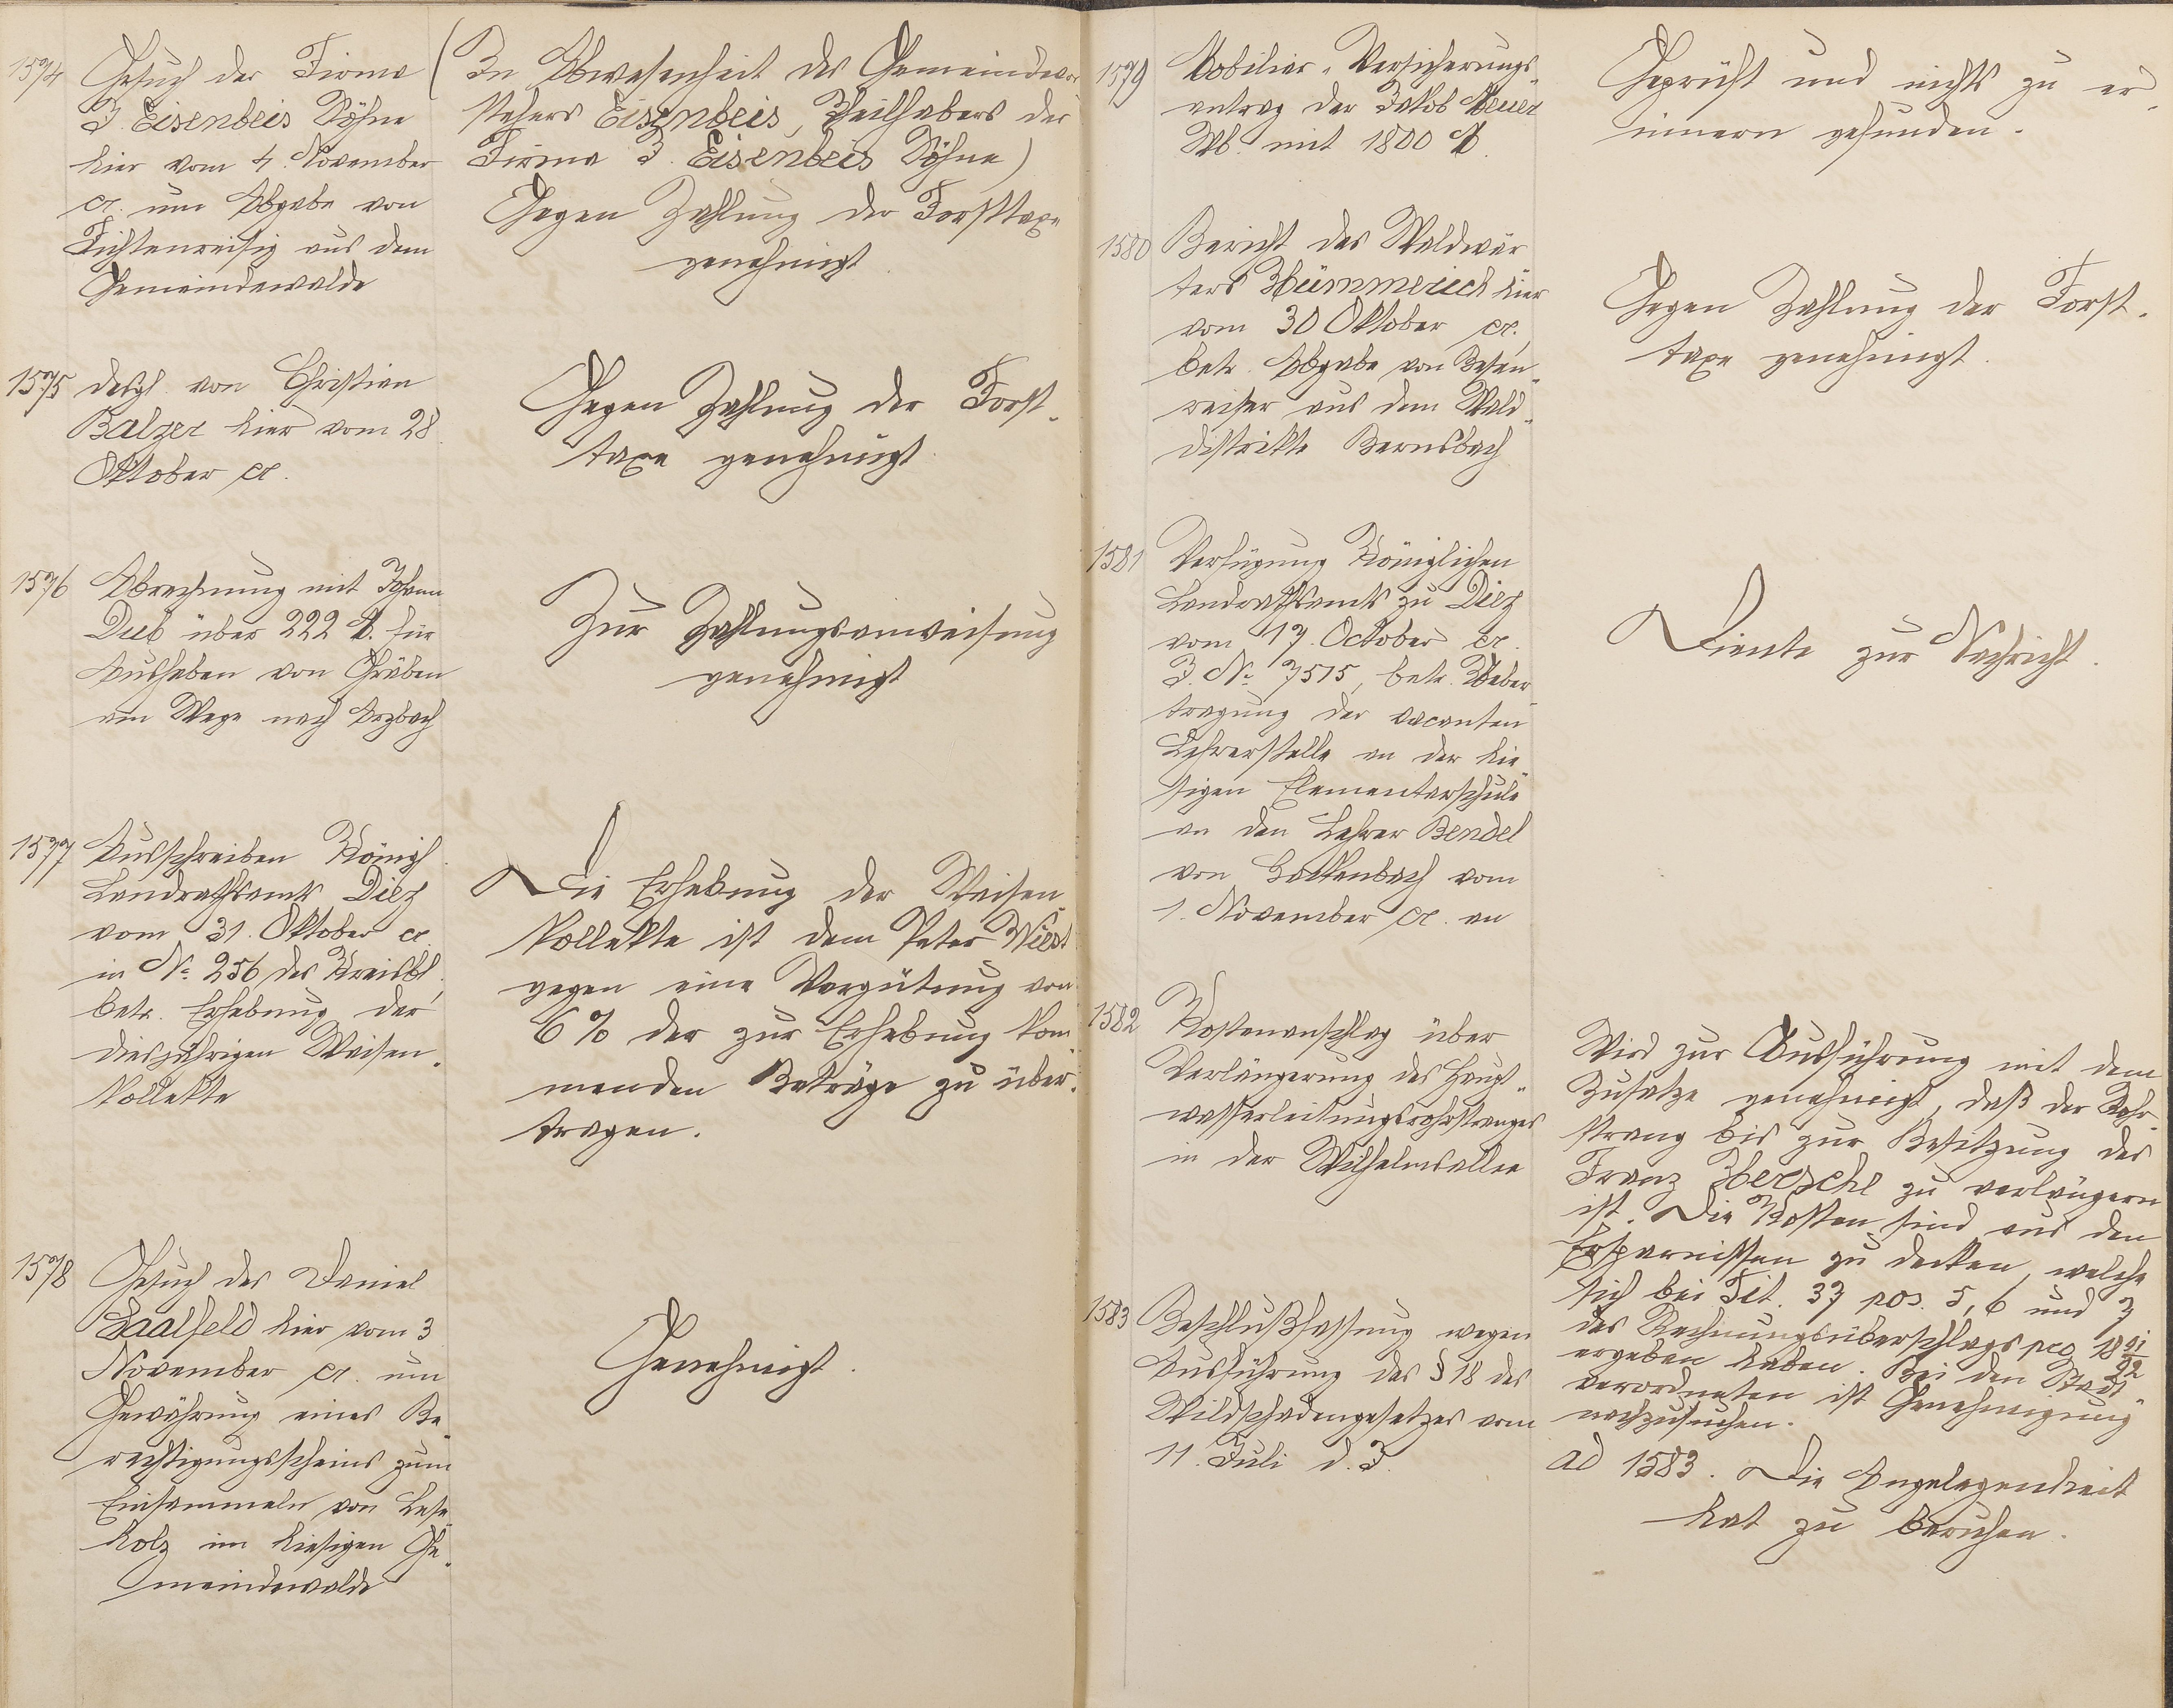 1574
Gesuch der Firma
J. Eisenbeis Söhne
hier vom 4. November
cr. um Abgabe von
Fichtenreisig aus dem
Gemeindewalde
(In Abwesenheit des Gemeindevor
stehers Eisenbeis, Theilhabers der
Firma J. Eisenbeis Söhne)
Gegen Zahlung der Forsttaxe
genehmigt
1575
desgl. von Christian
Balzer hier vom 28.
Oktober cr.
Gegen Zahlung der Forst-
taxe genehmigt.
1576
Abrechnung mit Johann
über 222 M. für
Ausheben von Gräben
am Wege nach Arzbach
Zur Zahlungsanweisung
genehmigt
1577
Ausschreiben Königl.
Landrathsamts Diez
vom 31. Oktober cr.
in No. 256 des Kreisbl.,
betr. Erhebung der
diesjährigen Waisen-
kollekte
Die Erhebung der Waisen-
kollekte ist dem Peter
gegen eine Vergütung von
6% der zur Erhebung kom
menden Beträge zu über-
tragen.
1578
Gesuch des Daniel
Saalfeld hier vom 3
November cr. um
Gewährung eines Be-
rechtigungsscheins zum
Einsammeln von Lese
holz im hiesigen Ge-
meindewalde
Genehmigt.
1579
Mobiliar-Versicherungs-
antrag der Jakob
Wb. mit 1800 M.
Geprüft und nichts zu er-
innern gefunden.
1580
Bericht des Waldwär
ters Hümmerich hier
vom 30 Oktober cr.,
betr. Abgabe von Besen-
reiser aus dem Wald-
distrikte Bernsbach
Gegen Zahlung der Forst-
taxe genehmigt.
1581
Verfügung Königlichen
Landrathsamts zu Diez
vom 17. October cr.
J. No. 7515, betr. Ueber-
tragung der vacanten
Lehrerstelle an der hie-
sigen Elementarschule
an den Lehrer Bendel
von vom
1. November cr. an
Diente zur Nachricht.
1582
Kostenanschlag über
Verlängerung des Haupt-
wasserleitungsrohrstranges
in der Wilhelmsallee
Wird zur Ausführung mit dem
Zusatze genehmigt, daß der Rohr-
strang bis zur Besitzung des
Franz zu verlängern
ist. Die Kosten sind aus den
Ersparnissen zu decken, welche
sich bei Tit. 37 pos. 5, 6 und 7
des Rechnungsüberschlags pro 1891/92
ergeben haben. Bei den Stadt-
verordneten ist Genehmigung
nachzusuchen.
1583
Beschlußfassung wegen
Ausführung des § 18 des
Wildschadengesetzes vom
11. Juli d. J.
ad 1583. Die Angelegenheit
hat zu beruhen.